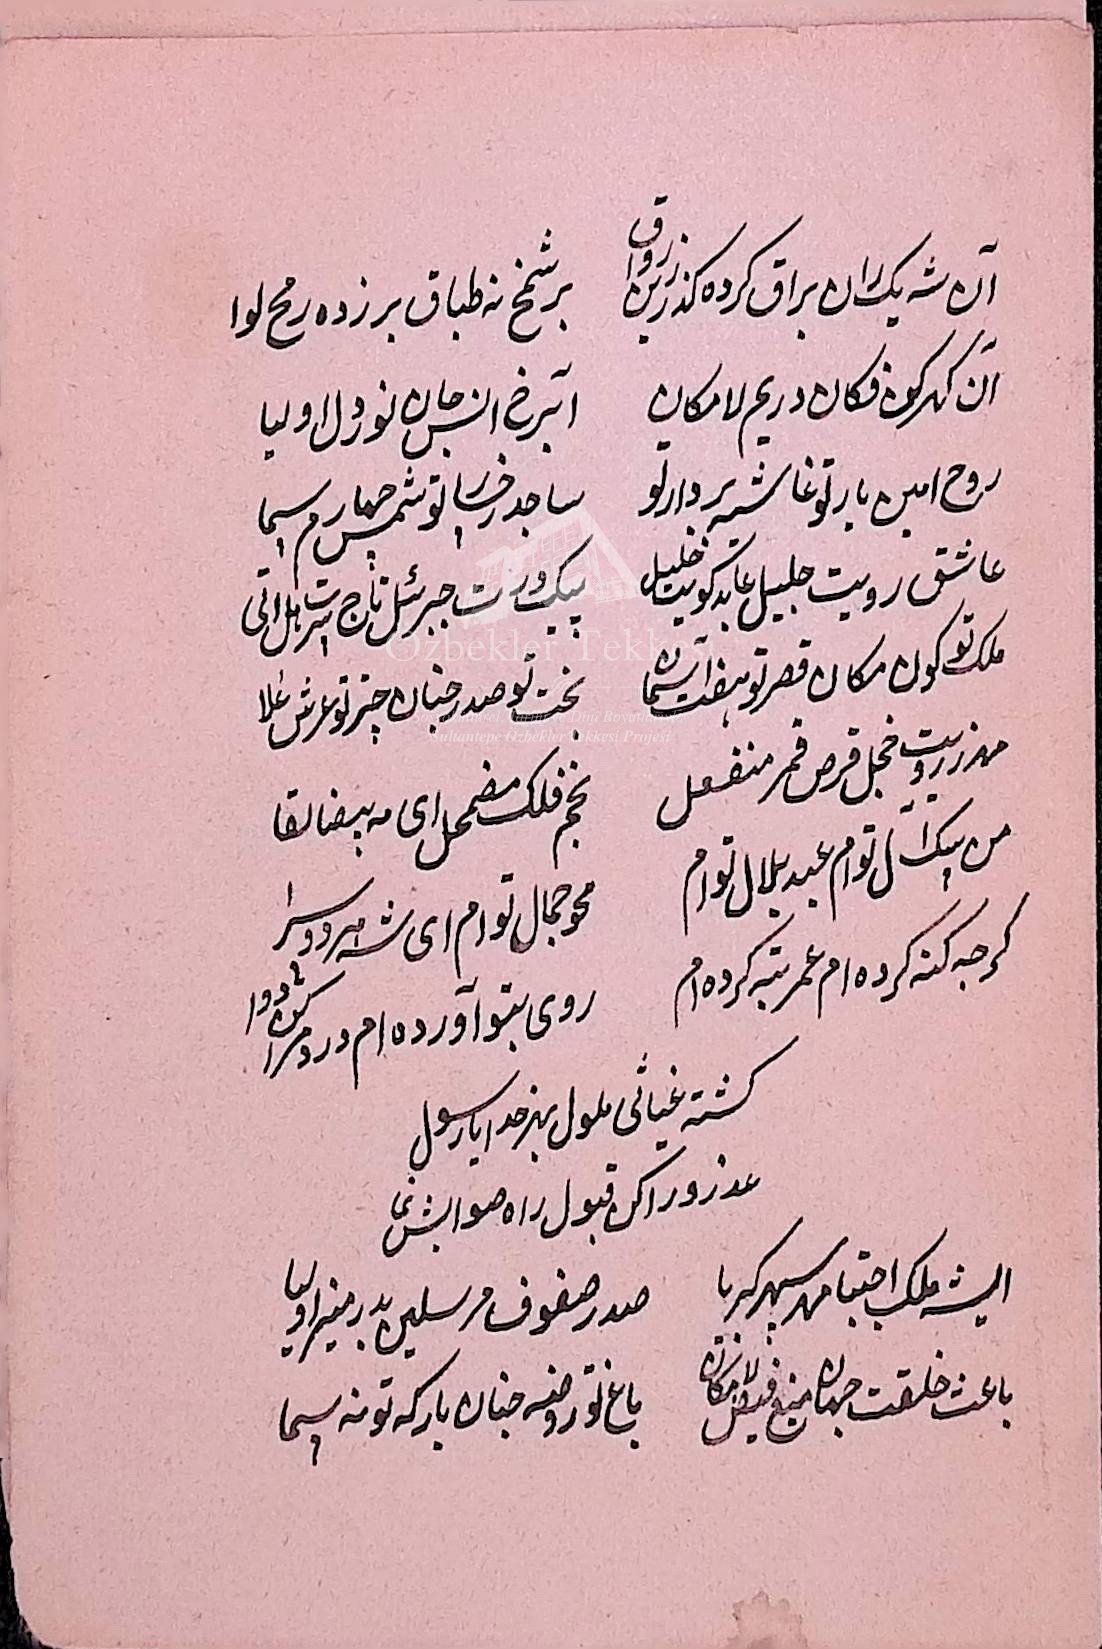 آن شه یک ران براق کرده گذر زین رواق    بر شخ نه طباق بر زده رمح لوا
آن گهر کون فکان در یم لامکان    انس جان نور دل اولیا
روح امین یار تو غاشیه بردار تو    ساجد رخسار تو شمس چهارم سما
عاشق رویت جلیل عابد کویت خلیل    پیک درت جبرئل تاج سرت هل اتی
ملک تو کون مکان قصر تو هفت آسمان    تخت تو صدر جنان چتر تو عرش علا
مهر ز رویت خجل قرص قمر منفعل    نجم فلک مضمحل ای مه بیضا لقا
من سک آل توام عبد بلال توام    محو جمال توام ای شه هر دو سرا
کرچه کنه کرده ام عمر تبه کرده ام    روی بتو آورده ام درد مرا کن دوا
کشته غیاثی ملول بهر خدا یا رسول
عذر ورا کن قبول راه صوابش نما
ایشه ملک اجتبا مهر سپهر کبریا    صدر صفوف مرسلین بدر منیر اولیا
باعث خلقت جهان منبع فیض لامکان    باغ تو روضه جنان بارکه تو نه سما
Özbekler Tekkesi
Sultantepe Özbekler Tekkesi Projesi